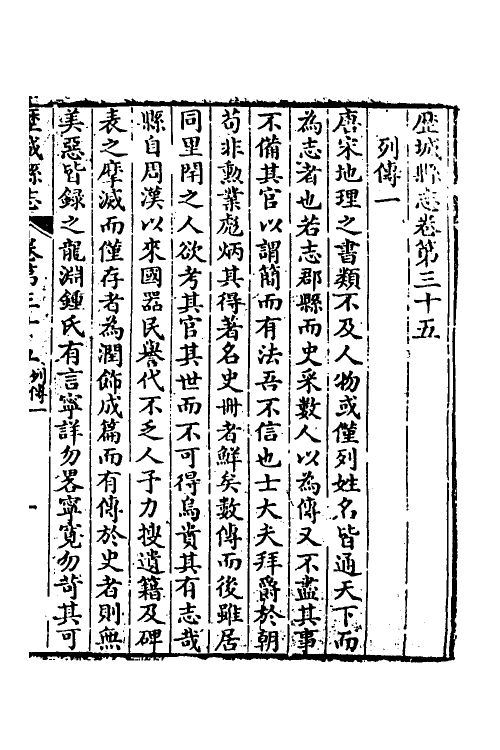 歷城縣志卷第三十五
列傳一
唐宋地理之書類不及人物或僅列姓名皆通天下而
為志者也若志郡縣而史采數人以為傳又不盡其事
不備其官以謂簡而有法吾不信也士大夫拜爵於朝
苟非勲業彪炳其得著名史冊者鮮矣數傳而後雖居
同里閈之人欲考其官其世而不可得烏貴其有志哉
縣自周漢以來國器民譽代不乏人予力搜遺籍及碑
表之摩滅而僅存者為潤飾成篇而有傳於史者則無
美惡皆錄之龍淵鍾氏有言寧詳勿畧寧寬勿苛其可
歷城縣志 卷第三十五 列傳一 一